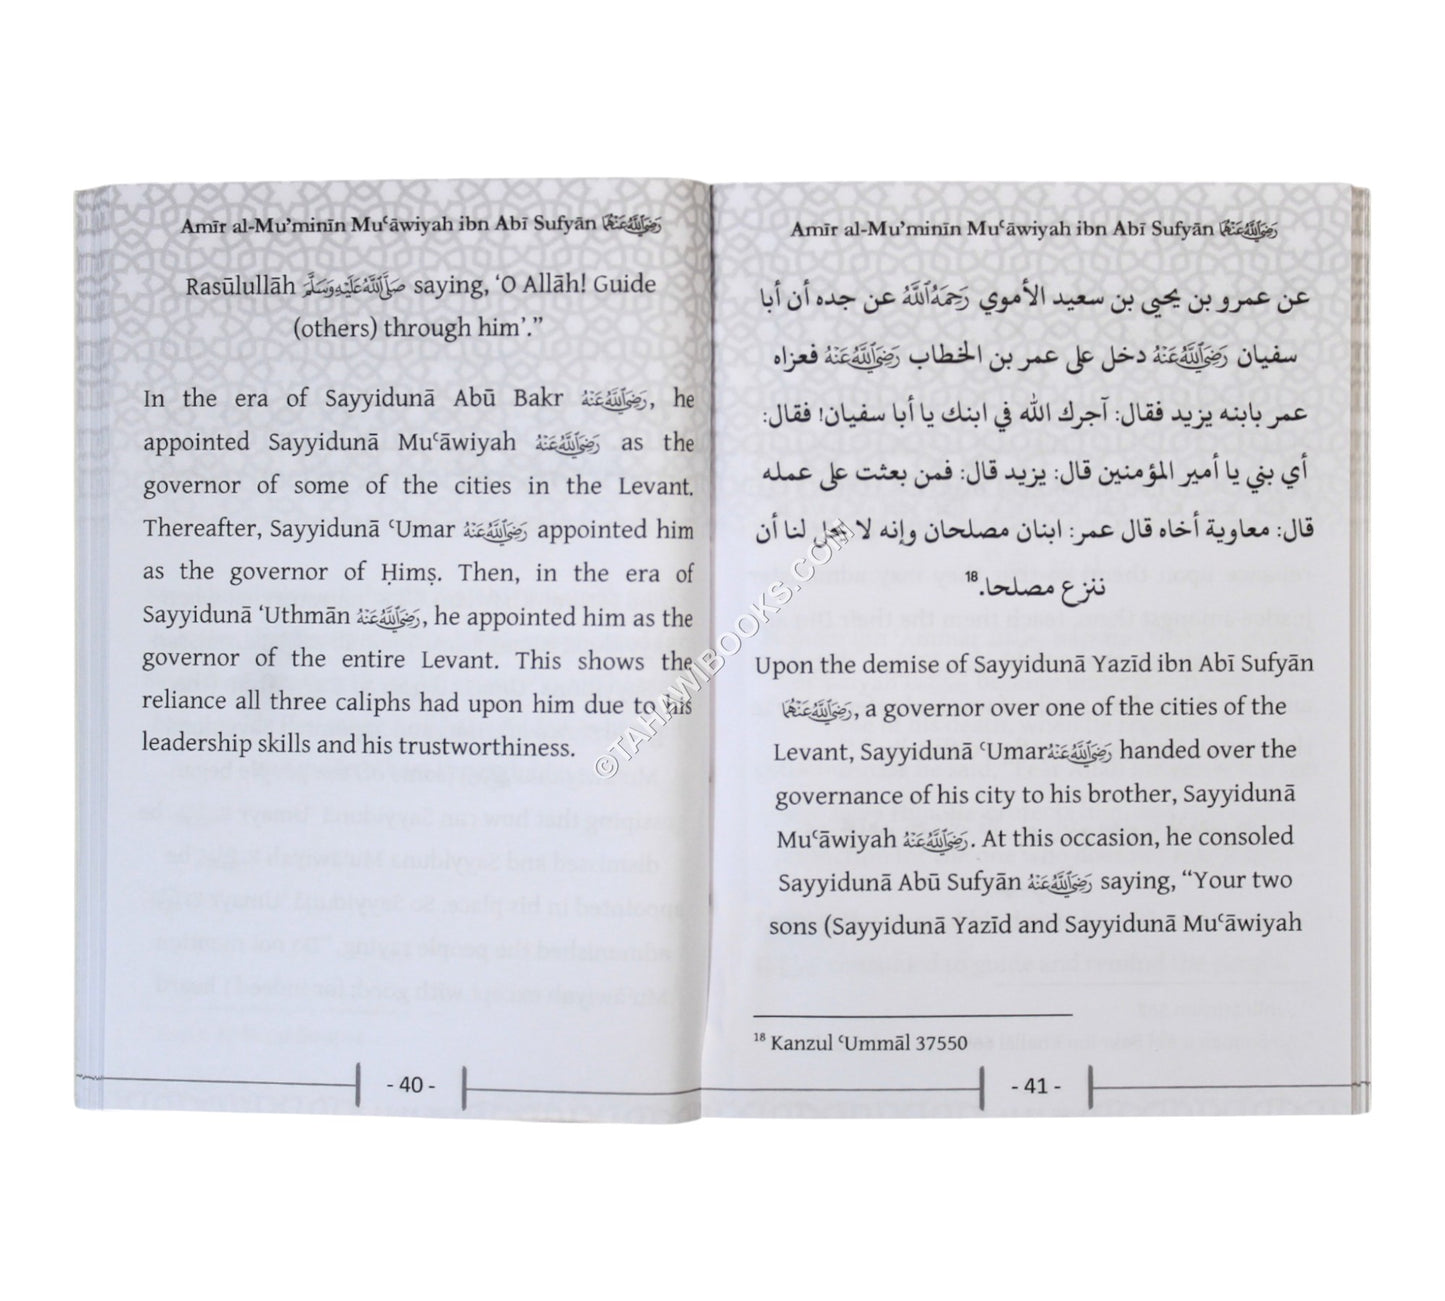 Amīr al-Mu’minīn Muʿāwiyah ibn Abī Sufyān رَضِيَ اللَّهُ عَنْهُمَا
Rasūlullāh صَلَّى اللَّهُ عَلَيْهِ وَسَلَّمَ saying, ‘O Allāh! Guide
(others) through him’.”
In the era of Sayyidunā Abū Bakr رَضِيَ اللَّهُ عَنْهُ, he
appointed Sayyidunā Muʿāwiyah رَضِيَ اللَّهُ عَنْهُ as the
governor of some of the cities in the Levant.
Thereafter, Sayyidunā ʿUmar رَضِيَ اللَّهُ عَنْهُ appointed him
as the governor of Ḥimṣ. Then, in the era of
Sayyidunā ‘Uthmān رَضِيَ اللَّهُ عَنْهُ, he appointed him as the
governor of the entire Levant. This shows the
reliance all three caliphs had upon him due to his
leadership skills and his trustworthiness.
- 40 -
Amīr al-Mu’minīn Muʿāwiyah ibn Abī Sufyān رَضِيَ اللَّهُ عَنْهُمَا
عن عمرو بن يحيى بن سعيد الأموي رَحِمَهُ اللَّهُ عن جده أن أبا
سفيان رَضِيَ اللَّهُ عَنْهُ دخل على عمر بن الخطاب رَضِيَ اللَّهُ عَنْهُ فعزاه
عمر بابنه يزيد فقال: آجرك الله في ابنك يا أبا سفيان! فقال:
أي بني يا أمير المؤمنين قال: يزيد قال: فمن بعثت على عمله
قال: معاوية أخاه قال عمر: ابنان مصلحان وإنه لا يحل لنا أن
ننزع مصلحا.¹⁸
Upon the demise of Sayyidunā Yazīd ibn Abī Sufyān
رَضِيَ اللَّهُ عَنْهُمَا, a governor over one of the cities of the
Levant, Sayyidunā ʿUmar رَضِيَ اللَّهُ عَنْهُ handed over the
governance of his city to his brother, Sayyidunā
Muʿāwiyah رَضِيَ اللَّهُ عَنْهُ. At this occasion, he consoled
Sayyidunā Abū Sufyān رَضِيَ اللَّهُ عَنْهُ saying, “Your two
sons (Sayyidunā Yazīd and Sayyidunā Muʿāwiyah
¹⁸ Kanzul ʿUmmāl 37550
- 41 -
©TAHAWIBOOKS.COM